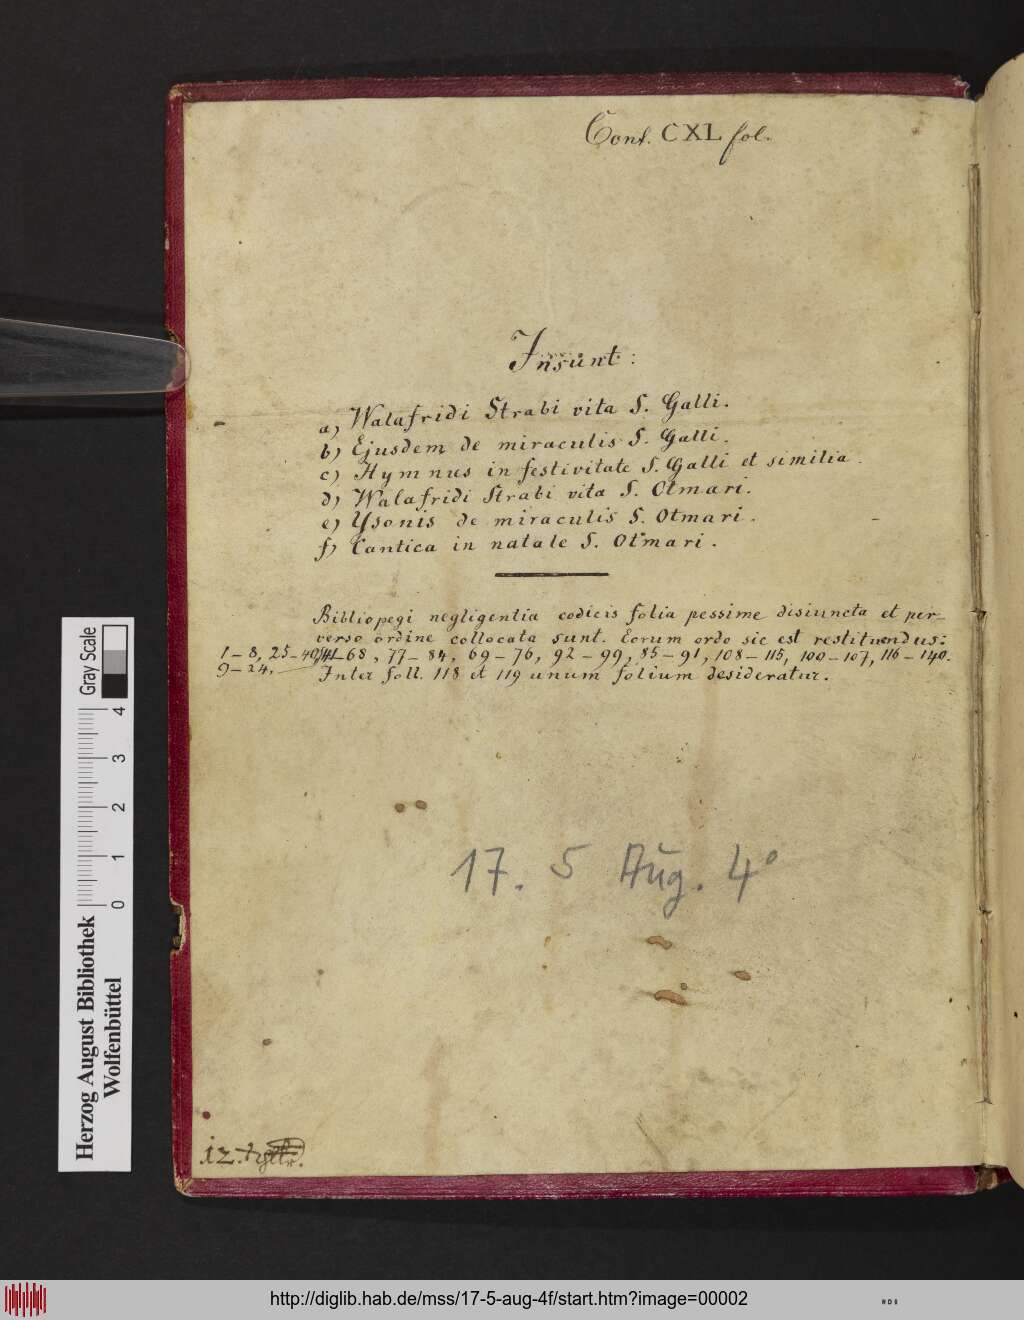 Cont. CXL fol.
Insunt:
a) Walafridi Strabi vita S. Galli.
b) Ejusdem de miraculis S. Galli.
c) Hymnus in festivitate S. Galli et similia.
d) Walafridi Strabi vita S. Otmari.
e) Ysonis de miraculis S. Otmari.
f) Cantica in natale S. Otmari.
Bibliopegi negligentia codicis folia pessime disiuncta et per-
verso ordine collocata sunt. Eorum ordo sic est restituendus:
1-8, 25-40, 41-68, 77-84, 69-76, 92-99, 85-91, 108-115, 100-107, 116-140.
9-24,
Inter foll. 118 et 119 unum folium desideratur.
17. 5 Aug. 4°
12.
Herzog August Bibliothek
Wolfenbüttel
Gray Scale
0 1 2 3 4
http://diglib.hab.de/mss/17-5-aug-4f/start.htm?image=00002